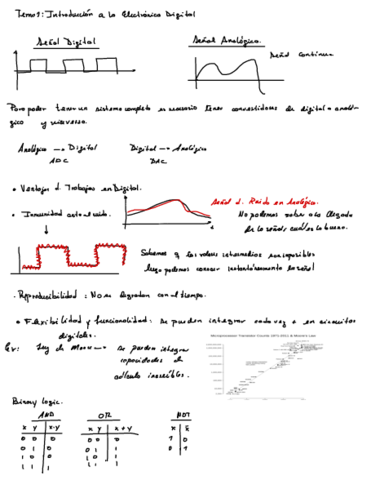 Tema 1: Introducción a la Electrónica Digital
Señal Digital
Señal Analógica.
Señal continua
Para poder tener un sistema completo es necesario tener convertidores de digital a analó-
gico y viceversa.
Analógico → Digital
Digital → Analógico
ADC
DAC.
• Ventajas d. Trabajar en Digital.
Señal d. Ruido en Analógico.
• Inmunidad ante el ruido.
No podemos saber a la llegada
de la señal cuál es la buena.
Sabemos q los valores intermedios son imposibles
luego podemos conocer instantáneamente la señal
. Reproducibilidad: No se degradan con el tiempo.
• Flexibilidad y funcionalidad: Se pueden integrar cada vez a en circuitos
digitales.
Ex: Ley de Moore → Se pueden integrar
capacidades de
cálculo increíbles.
Microprocessor Transistor Counts 1971-2011 & Moore's Law
Binary logic.
AND
OR
NOT
x y x·y
x y x+y
x x̄
0 0 0
0 0 0
1 0
0 1 0
0 1 1
0 1
1 0 0
1 0 1
1 1 1
1 1 1